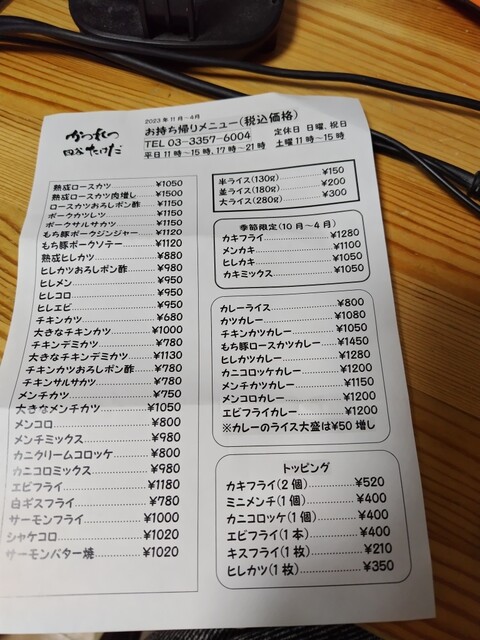 かつれつ
四谷たけだ
2023年11月~4月
お持ち帰りメニュー(税込価格)
TEL 03-3357-6004 定休日 日曜,祝日
平日11時~15時,17時~21時 土曜11時~15時
熟成ロースカツ ¥1050
熟成ロースカツ肉増し ¥1500
ロースカツおろしポン酢 ¥1150
ポークカツレツ ¥1150
ポークサルサカツ ¥1150
もち豚ポークジンジャー ¥1120
もち豚ポークソテー ¥1120
熟成ヒレカツ ¥880
ヒレカツおろしポン酢 ¥980
ヒレメン ¥950
ヒレコロ ¥950
ヒレエビ ¥950
チキンカツ ¥680
大きなチキンカツ ¥1000
チキンデミカツ ¥780
大きなチキンデミカツ ¥1130
チキンカツおろしポン酢 ¥780
チキンサルサカツ ¥780
メンチカツ ¥750
大きなメンチカツ ¥1050
メンコロ ¥800
メンチミックス ¥980
カニクリームコロッケ ¥800
カニコロミックス ¥980
エビフライ ¥1180
白ギスフライ ¥780
サーモンフライ ¥1000
シャケコロ ¥1020
サーモンバター焼 ¥1020
半ライス(130g) ¥150
並ライス(180g) ¥200
大ライス(280g) ¥300
季節限定(10月~4月)
カキフライ ¥1280
メンカキ ¥1100
ヒレカキ ¥1050
カキミックス ¥1050
カレーライス ¥800
カツカレー ¥1080
チキンカツカレー ¥1050
もち豚ロースカツカレー ¥1450
ヒレカツカレー ¥1280
カニコロッケカレー ¥1200
メンチカツカレー ¥1150
メンコロカレー ¥1200
エビフライカレー ¥1200
※カレーのライス大盛は¥50増し
トッピング
カキフライ(2個) ¥520
ミニメンチ(1個) ¥400
カニコロッケ(1個) ¥400
エビフライ(1本) ¥400
キスフライ(1枚) ¥210
ヒレカツ(1枚) ¥350